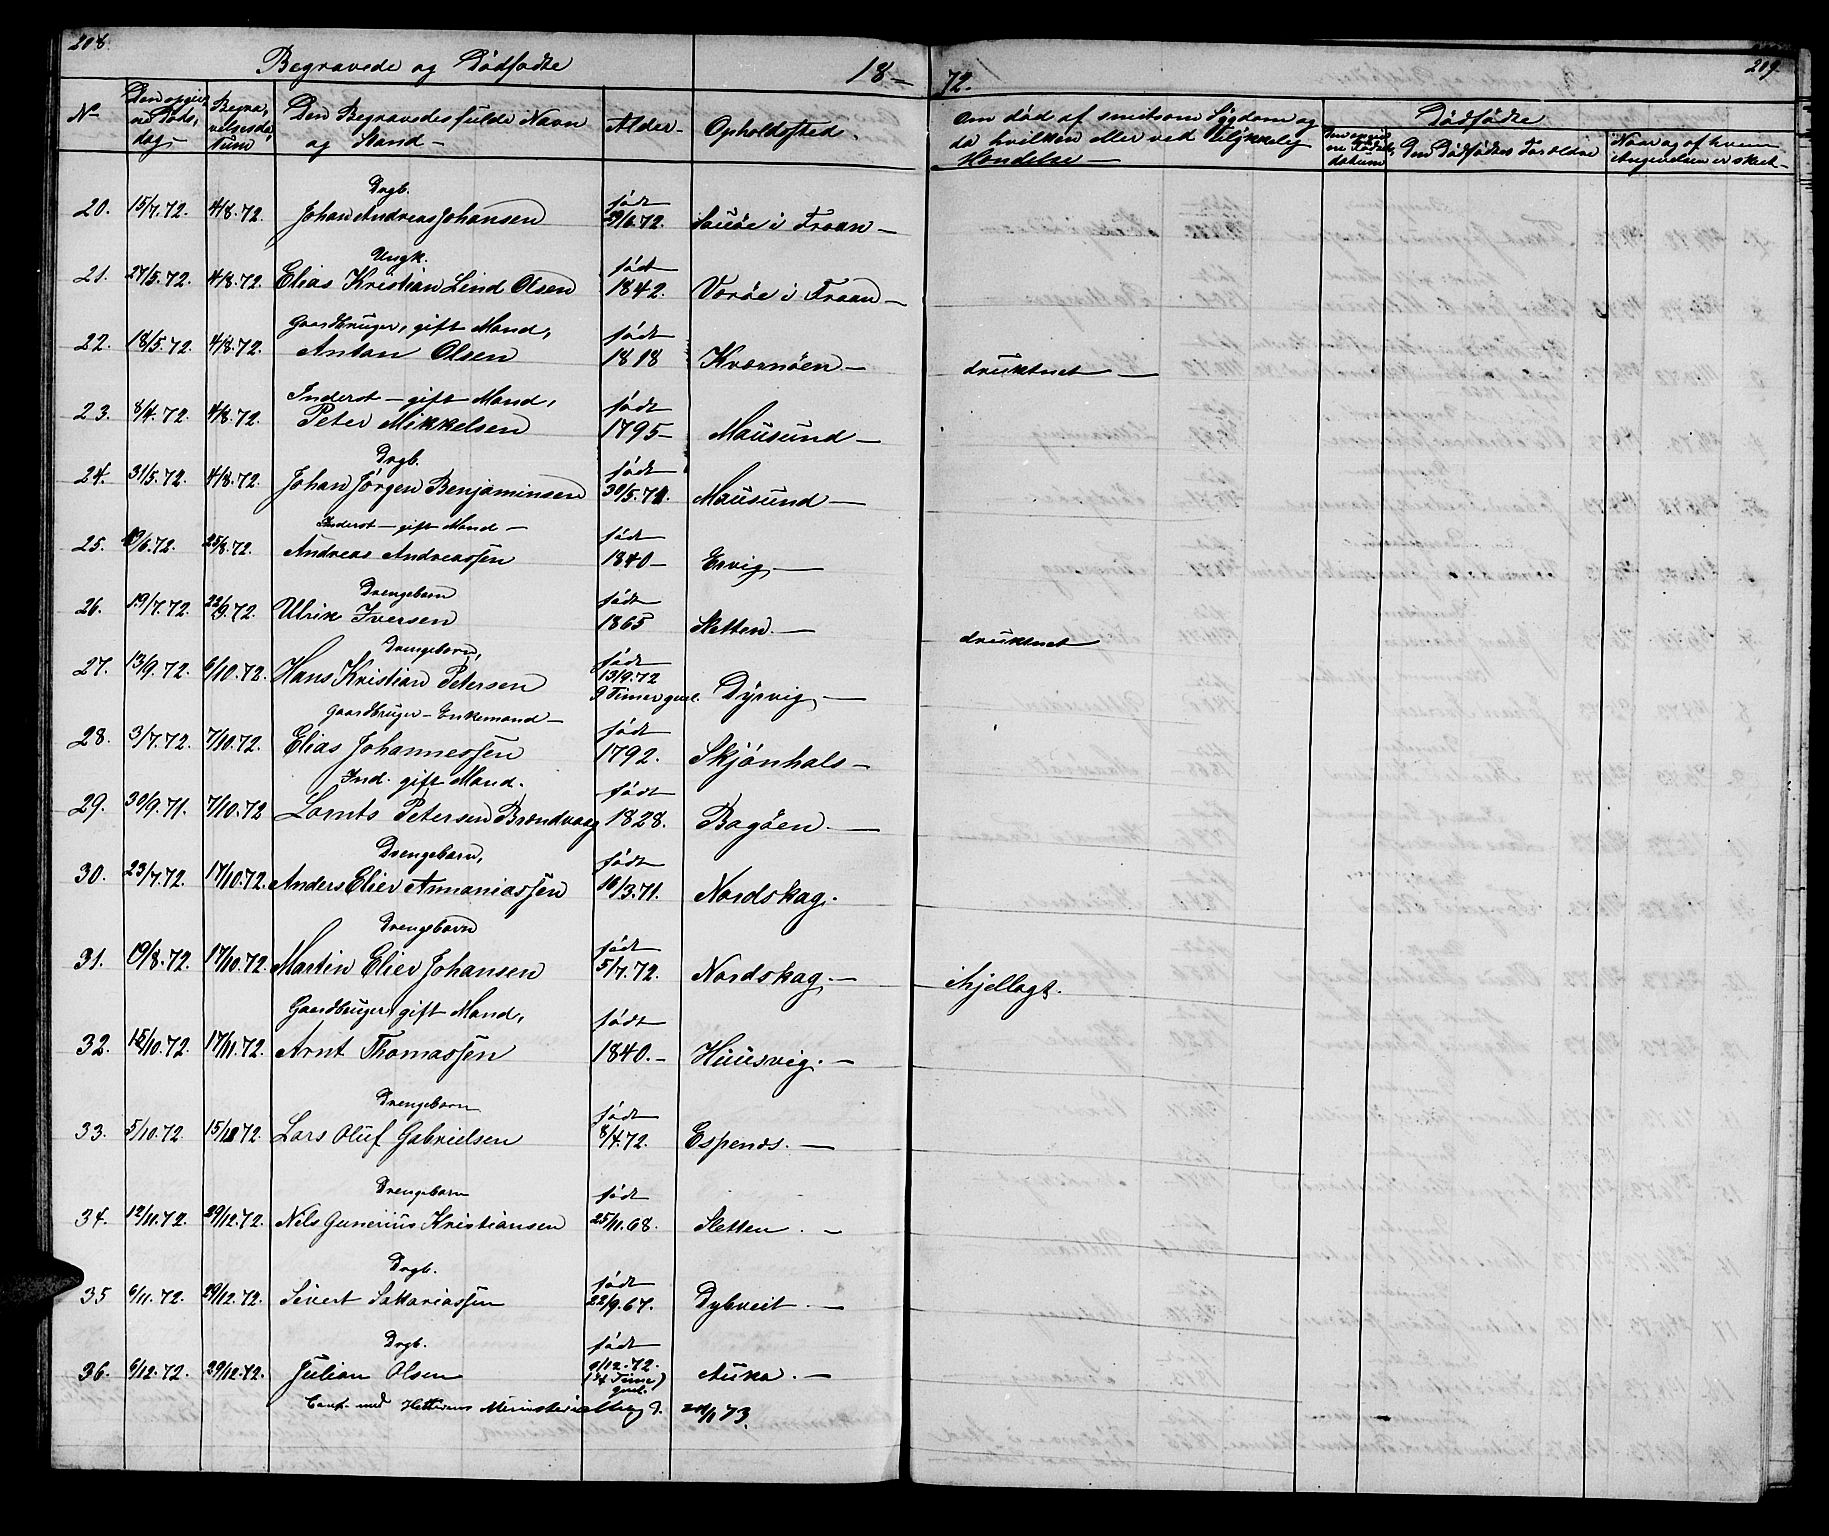 208.
Begravede og Dødfødte
18-
72.
209.
No
Den opgivne Dødsdag
Begravelsesdatum
Den Begravedes fulde Navn og Stand
Alder
Opholdssted.
Om død af smitsom Sygdom og da hvilken eller ved Ulykkelig Hændelse
Dødfødte
Den Dødfødtes Forældre
Naar og af hvem Angivelsen er skeet
Drgb. født
20. 15/7.72. 4/8.72. Johan Andreas Johansen 29/6.72. Sauøe i Froan
Ungk. født
21. 27/5.72. 4/8.72. Elias Kristian Lind Olsen 1842. Vorøe i Froan
Gaardbruger, gift Mand, født
22. 18/5.72. 4/8.72. Anton Olsen 1818 Kværnøen druknet
Inderst - gift Mand, født
23. 8/4.72. 4/8.72. Peter Mikkelsen 1795 Mausund
Drgb. født
24. 31/5.72. 4/8.72. Johan Jørgen Benjaminsen 30/5.72. Mausund
Inderst - gift Mand - født
25. /6.72. 25/8.72. Andreas Andreassen 1840 Ervig
Drengebarn født
26. 19/7.72. 22/9.72. Ulrik Iversen 1865 Sletten druknet
Drengebarn, født
27. 13/9.72. 6/10.72. Hans Kristian Petersen 13/9.72 9 Timer gml. Dyrvig
Gaardbruger - Enkemand - født
28. 3/7.72. 7/10.72. Elias Johannessen 1792. Skjønhals
Ind. gift Mand. født
29. 30/9.71. 7/10.72 Lornts Petersen Brændvaag 1828. Bogøen
Drengebarn, født
30. 23/7.72. 17/10.72. Anders Elier Annaniassen 16/3.71. Nordskag.
Drengebarn født
31. 19/8.72. 17/10.72. Martin Elier Johansen 5/7.72. Nordskag ihjellagt.
Gaardbruger gift Mand, født
32. 15/10.72. 17/11.72. Arnt Thomassen 1840. Huusvig
Drengebarn født
33. 5/10.72. 15/12.72. Lars Oluf Gabrielsen 8/4.72. Espenes.
Drengebarn født
34. 12/11.72. 29/12.72. Nils Gunerius Kristiansen 25/11.68. Sletten
Drgb. født
35 6/11.72. 29/12.72. Sivert Sakariassen 22/9.67. Dybveit
Drgb. født
36. 6/12.72. 29/12.72. Julian Olsen 6/12.72. Auka
Conf. med Hitterens Ministerialbog d. /1 73.